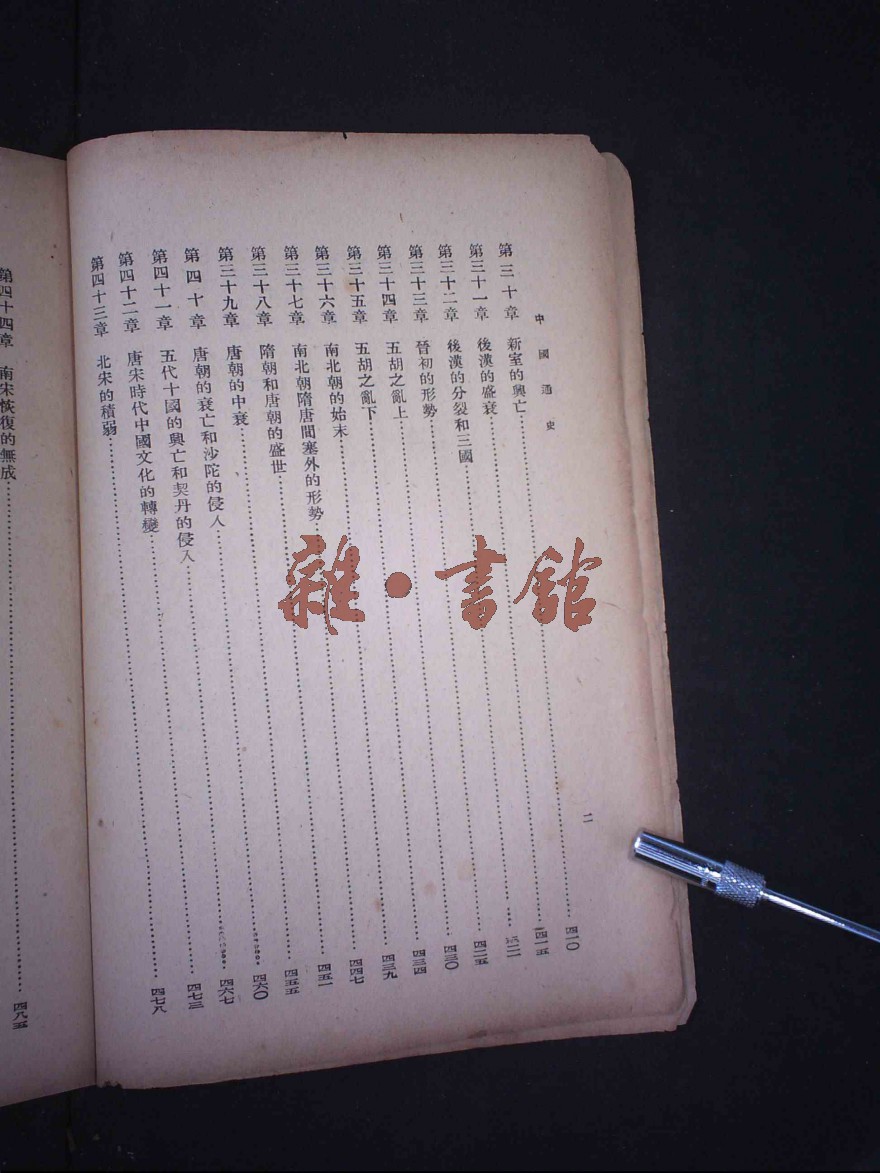 中國通史
二
第三十章 新室的興亡……四一〇
第三十一章 後漢的盛衰……四一五
第三十二章 後漢的分裂和三國……
第三十三章 晉初的形勢……四二五
第三十四章 五胡之亂上……四三〇
第三十五章 五胡之亂下……四三四
第三十六章 南北朝的始末……四三九
第三十七章 南北朝隋唐間塞外的形勢……四四七
第三十八章 隋朝和唐朝的盛世……四五一
第三十九章 唐朝的中衰……四五五
第四十章 唐朝的衰亡和沙陀的侵入……四六〇
第四十一章 五代十國的興亡和契丹的侵入……四六七
第四十二章 唐宋時代中國文化的轉變……四七三
第四十三章 北宋的積弱……四七八
第四十四章 南宋恢復的無成……四八五
雜·書館